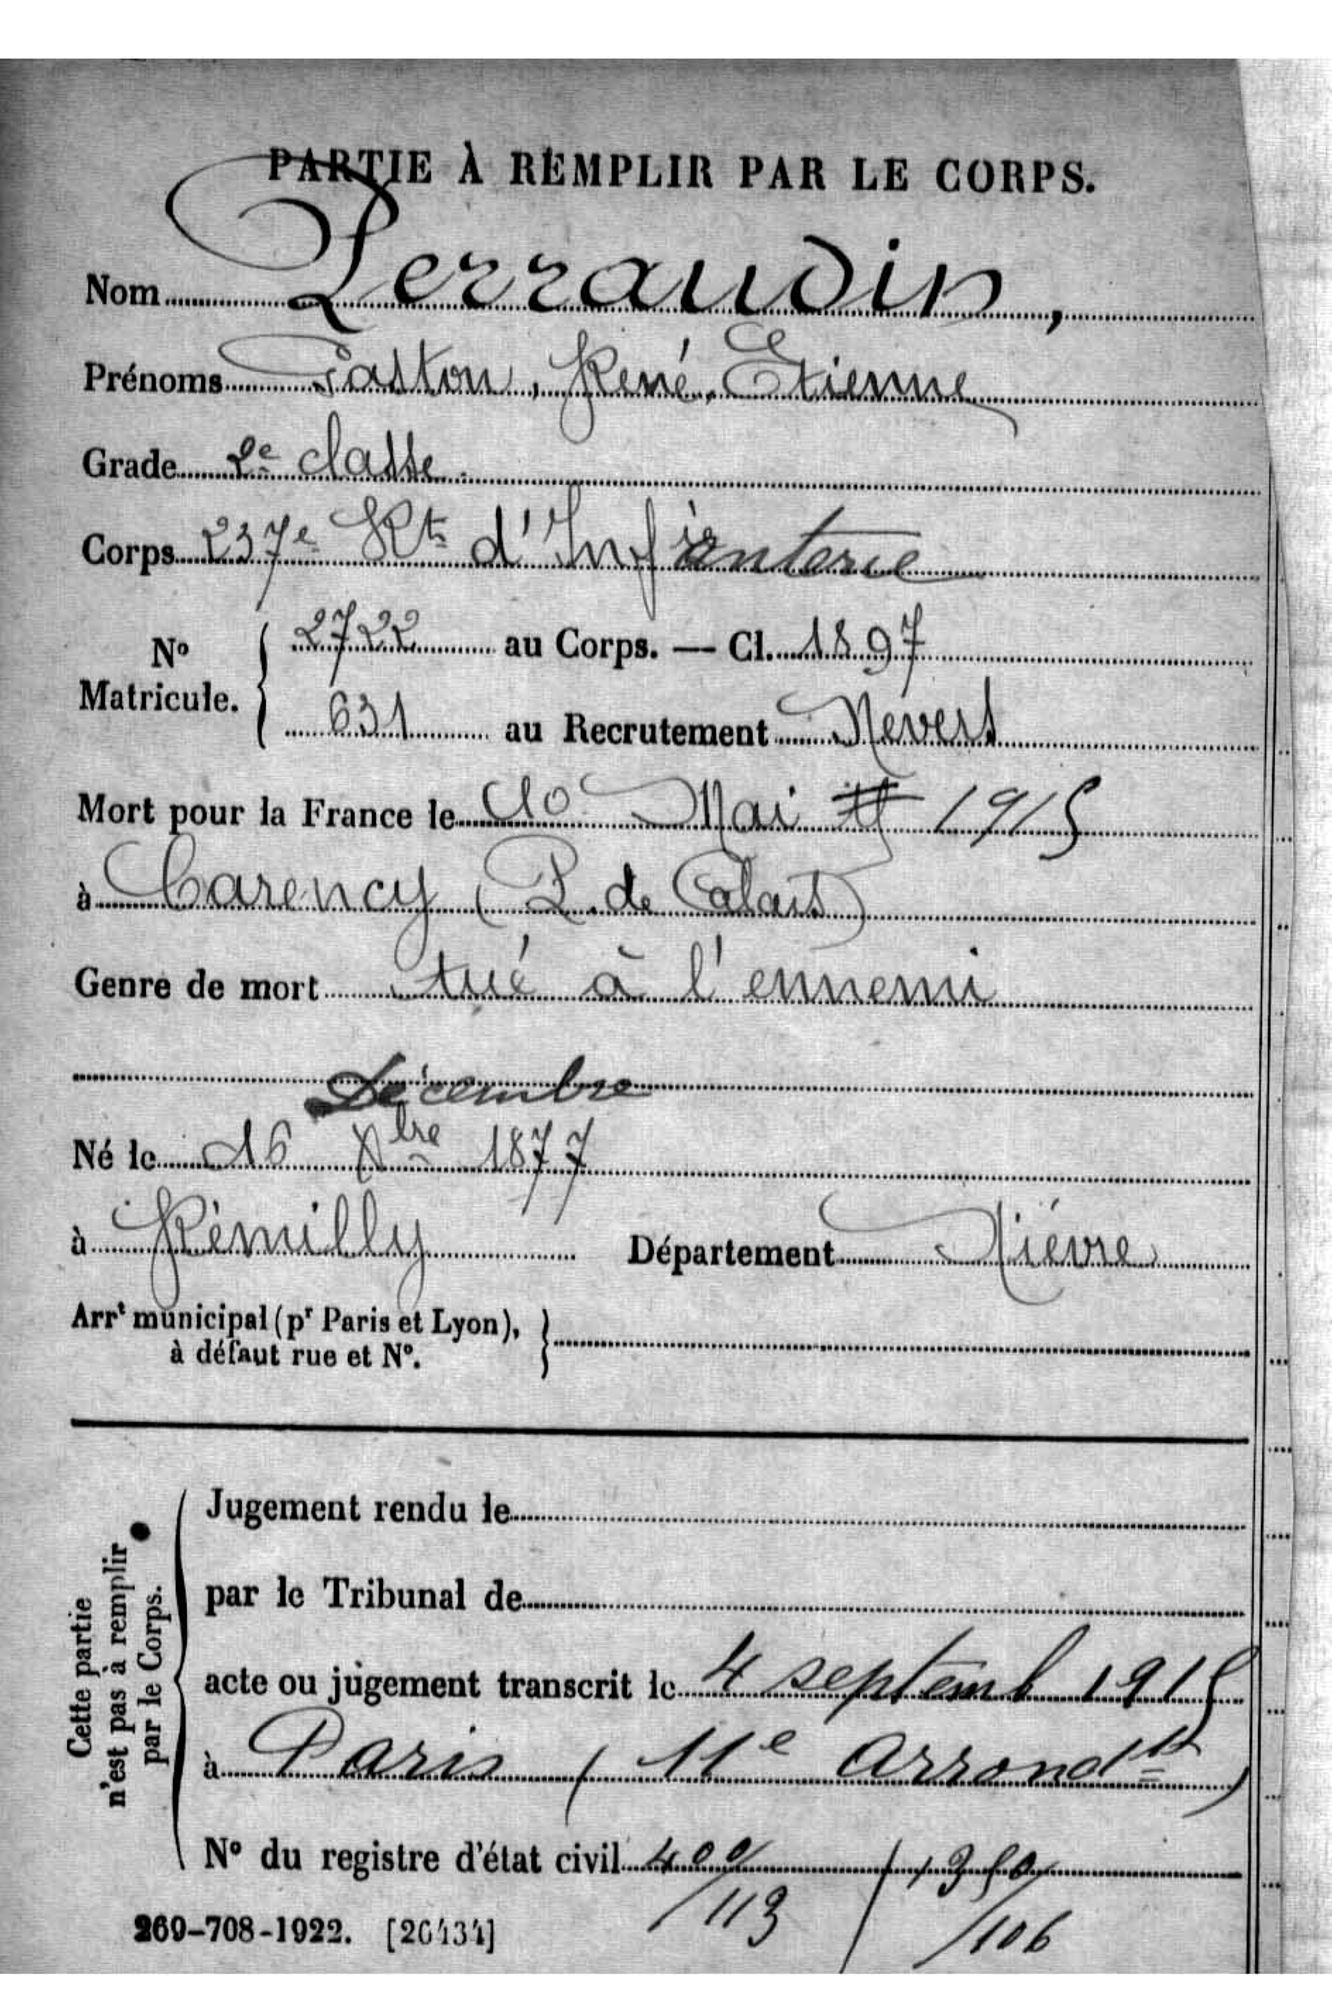 PARTIE À REMPLIR PAR LE CORPS.
Nom Perraudin,
Prénoms Gaston, René, Etienne
Grade 2e classe.
Corps 237e Rt d'Infanterie
No Matricule. { 2722 au Corps. — Cl. 1897
631 au Recrutement Nevers
Mort pour la France le 10 Mai 1915
à Carency (P. de Calais)
Genre de mort tué à l'ennemi
Décembre
Né le 16 Xbre 1877
à Rémilly Département Nièvre
Arrt municipal (pr Paris et Lyon), }
à défaut rue et No.
Cette partie
n'est pas à remplir
par le Corps.
Jugement rendu le
par le Tribunal de
acte ou jugement transcrit le 4 septemb 1915
à Paris (11e Arrondt)
No du registre d'état civil 400/113 / 1350/106
269-708-1922. [26434]